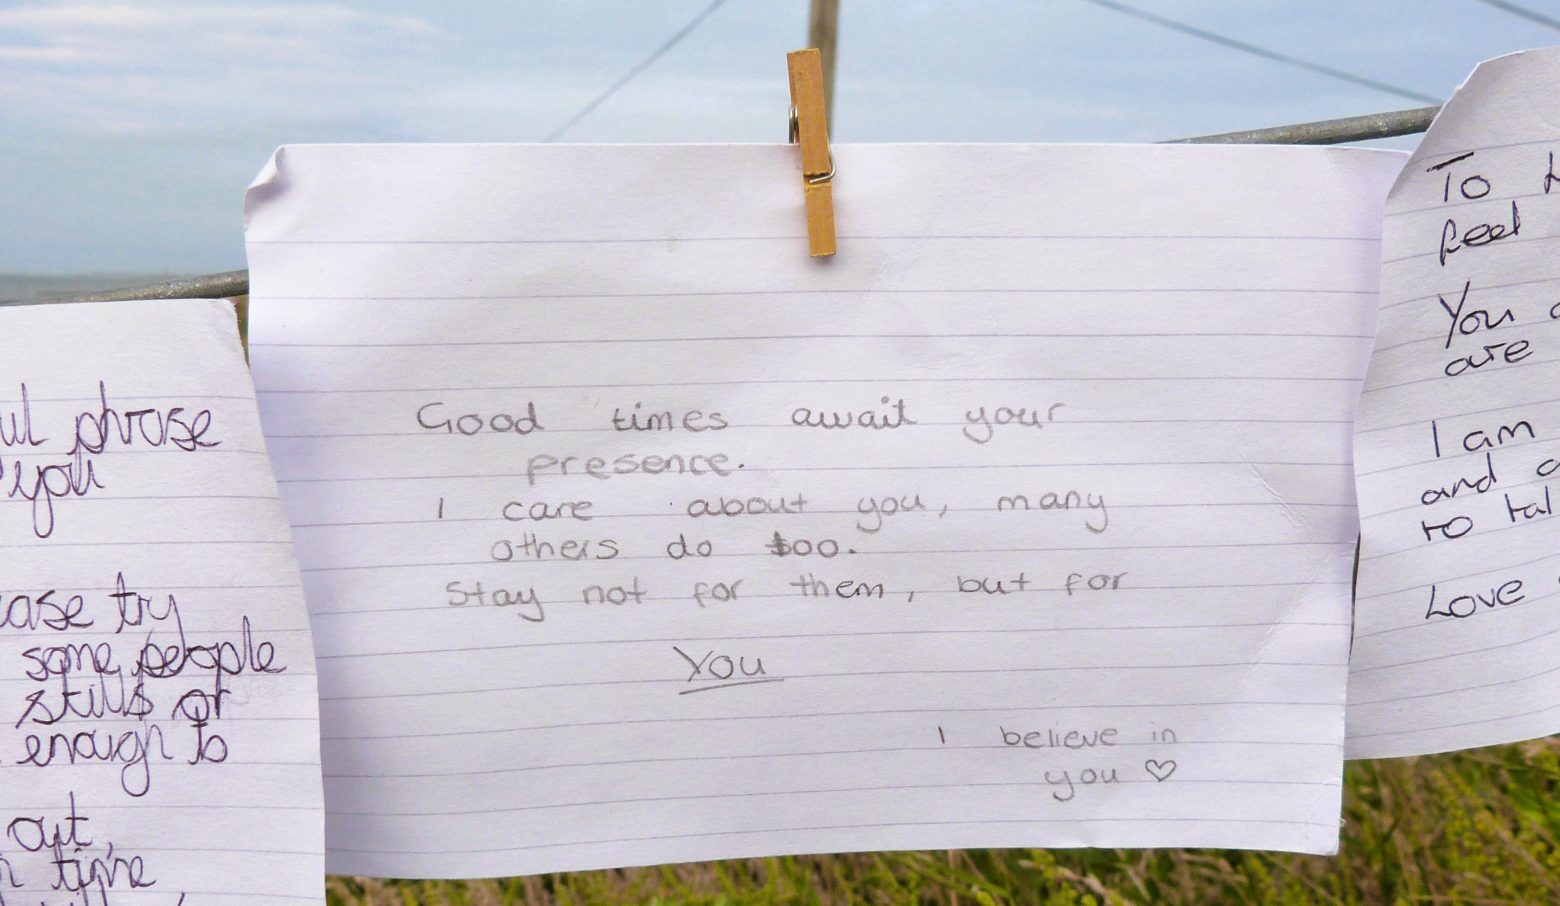 phrase
you
try
some people
stills or
enough to
out,
time,
Good times await your
presence.
I care about you, many
others do too.
Stay not for them, but for
You
I believe in
you ♡
To
feel
You
are
I am
and
to
Love